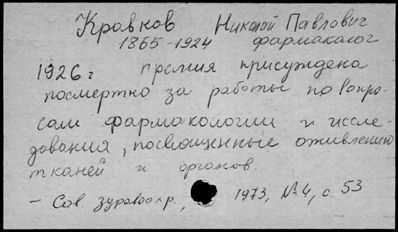 Кравков Николай Павлович
1865-1924 фармаколог
1926г премия присуждена
посмертно за работы по вопро-
сам фармакологии и иссле-
дования, посвященные оживлению
тканей и органов.
- Сов здравоохр., 1973, №4, с. 53